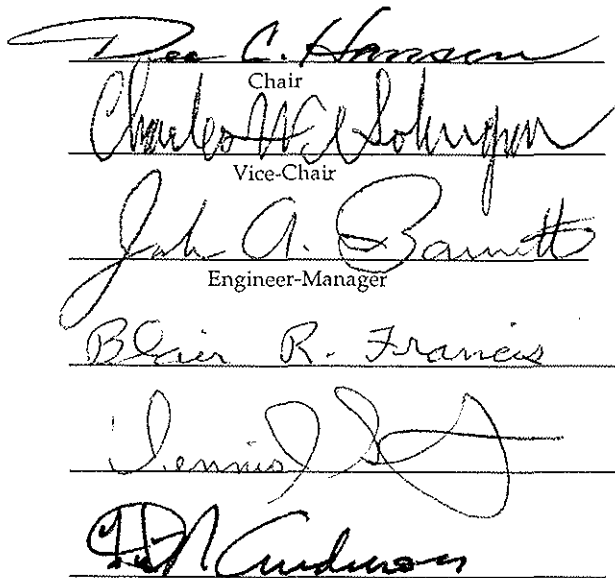 Dee C. Hansen
Chair
Charles W.
Vice-Chair
A. Barnett
Engineer-Manager
Blair R. Francis
Dennis J.
Anderson